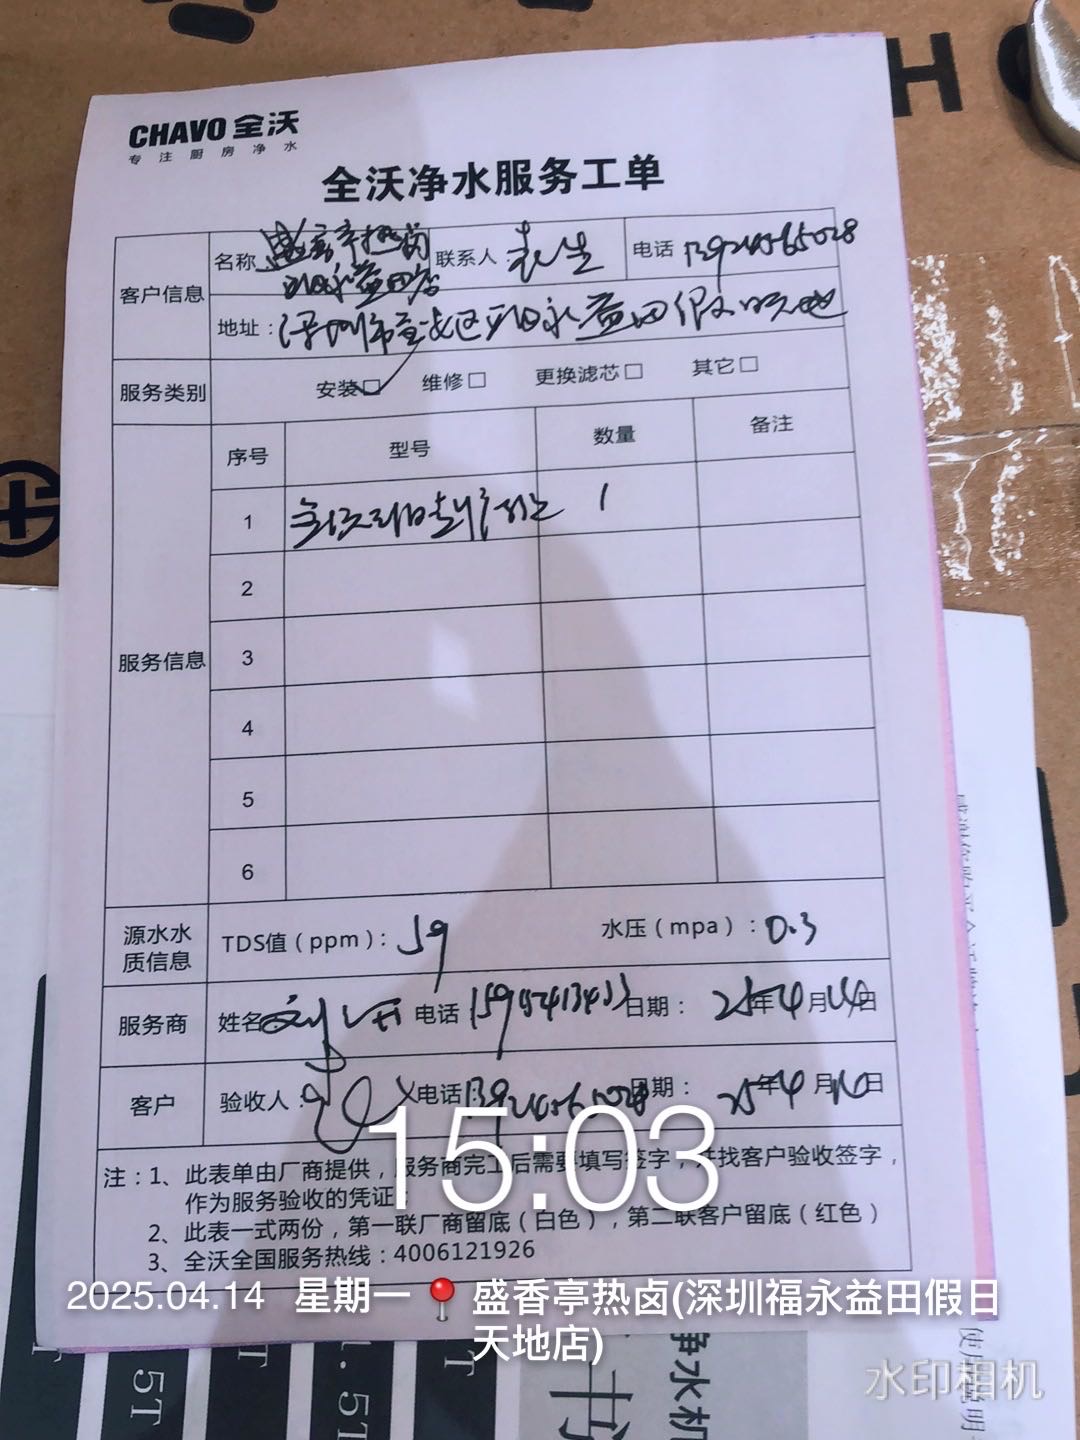 CHAVO 全沃
专注厨房净水
全沃净水服务工单
客户信息
名称 盛香亭热卤
福永益田店
联系人 袁生
电话
地址：深圳市宝安区福永益田假日天地
服务类别
安装☑ 维修□ 更换滤芯□ 其它□
服务信息
序号 型号 数量 备注
1 1
2
3
4
5
6
源水水质信息
TDS值（ppm）：59 水压（mpa）：0.3
服务商
姓名 刘 电话 日期： 25年4月14日
客户
验收人： 电话 日期： 25年4月 日
注：1、此表单由厂商提供，服务商完工后需要填写签字，并找客户验收签字，
作为服务验收的凭证；
2、此表一式两份，第一联厂商留底（白色），第二联客户留底（红色）
3、全沃全国服务热线：4006121926
15:03
2025.04.14 星期一 盛香亭热卤(深圳福永益田假日
天地店)
水印相机
净水机
书
使用说明
5T
.5T
H